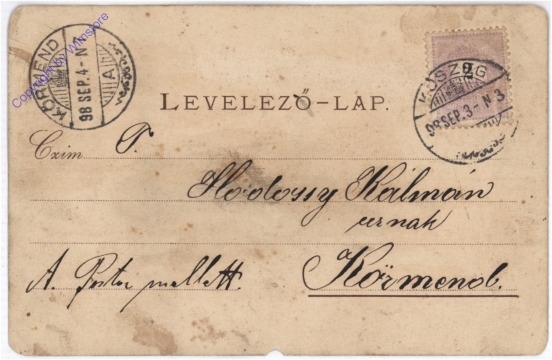 KÖRMEND
98 SEP. 4 - N
A
2
KŐSZEG
98 SEP. 3 - N 3
LEVELEZŐ-LAP.
Czim T.
Hodossy Kálmán
urnak
A. Posta mellett.
Körmend.